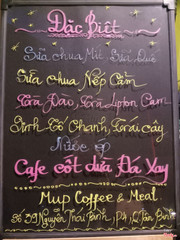 Đặc Biệt
Sữa chua Mít Sữa
Sữa chua Nếp Cẩm
Trà Đào, Trà Lipton Cam
Sinh Tố Chanh, Trái cây
Nước ép
Cafe Cốt dừa Đá Xay
Mup Coffee & Meal
Số 39 Nguyễn Thái Bình, P4, Q Tân Bình